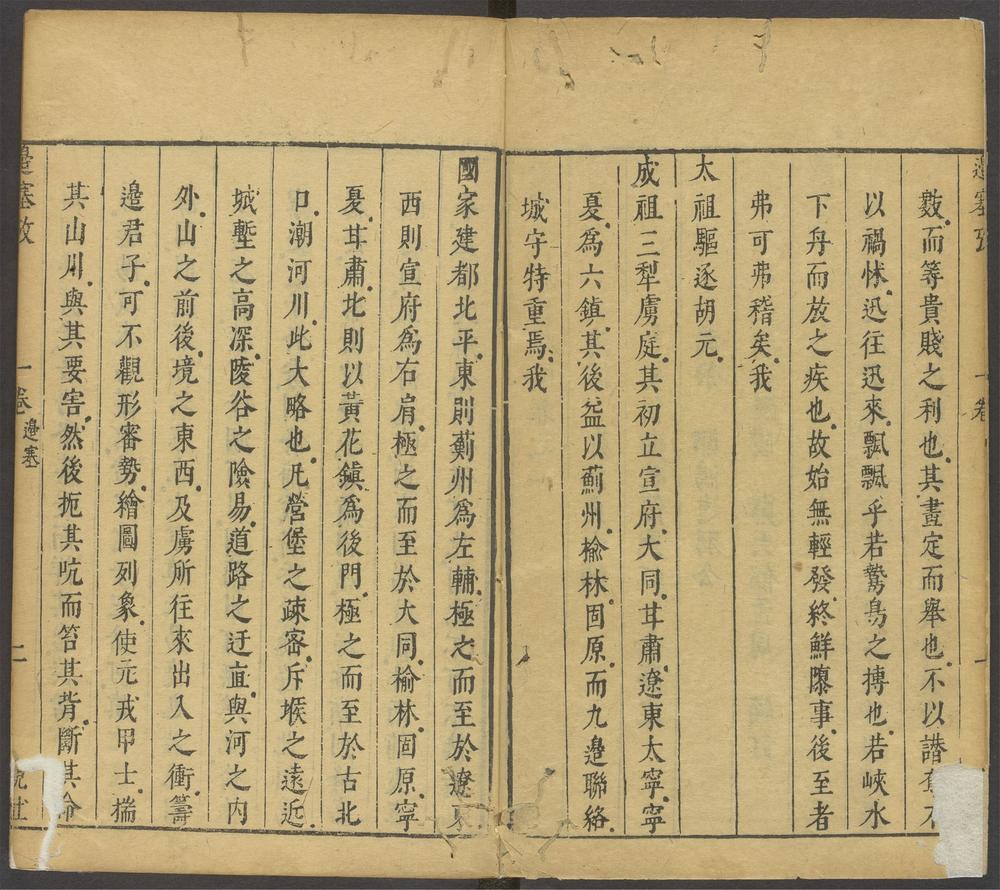 邊塞攷
一卷
一
斁而等貴賤之利也其畫定而舉也不以譖奪不
以禍怵迅往迅來飄飄乎若鷙鳥之搏也若峽水
下舟而放之疾也故始無輕發終鮮隳事後至者
弗可弗稽矣我
太祖驅逐胡元
成祖三犁虜庭其初立宣府大同甘肅遼東太寧寧
夏爲六鎮其後益以薊州榆林固原而九邊聯絡
城守特重焉我
國家建都北平東則薊州爲左輔極之而至於遼東
西則宣府爲右肩極之而至於大同榆林固原寧
夏甘肅北則以黃花鎮爲後門極之而至於古北
口潮河川此大略也凡營堡之疎密斥堠之遠近
城塹之高深陵谷之險易道路之迂直與河之内
外山之前後境之東西及虜所往來出入之衝籌
邊君子可不觀形審勢繪圖列象使元戎甲士揣
其山川與其要害然後扼其吭而笞其背斷其
邊塞攷
一卷
邊塞
二